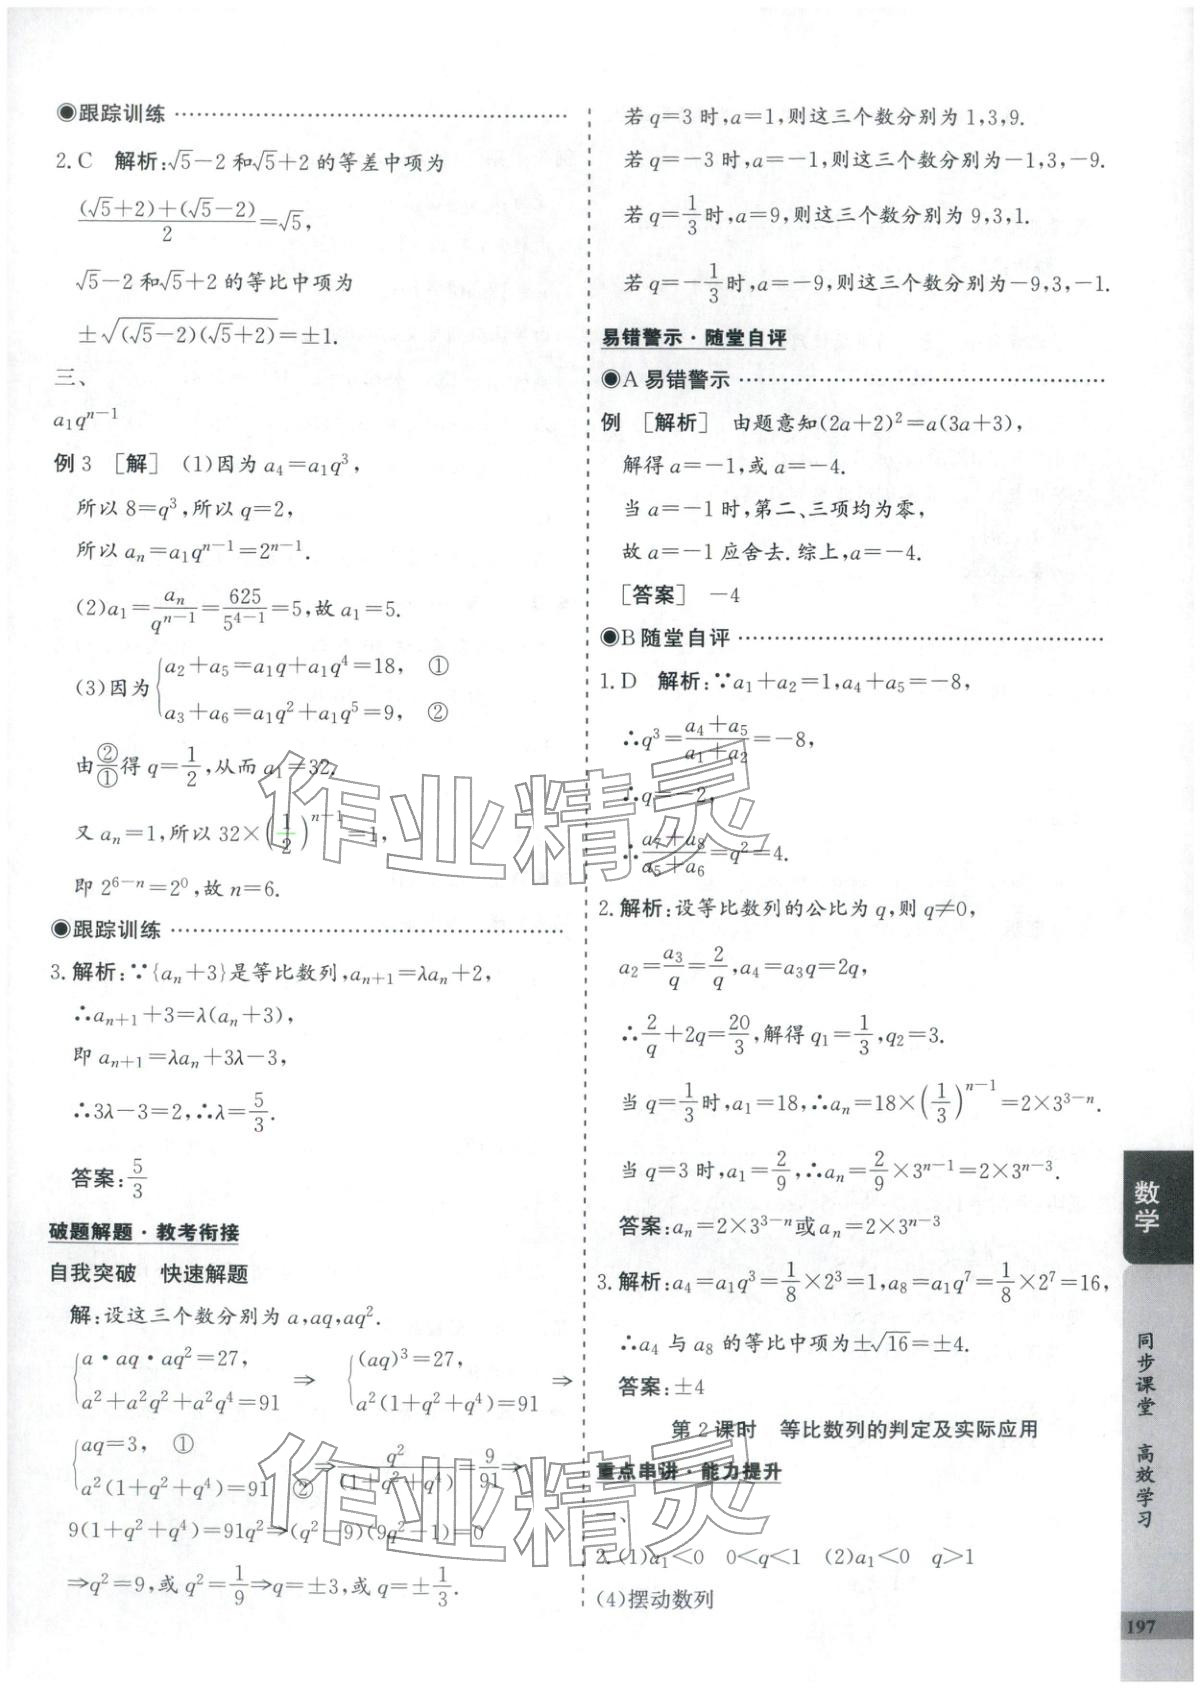 ◉跟踪训练
2.C 解析:√5−2和√5+2的等差中项为
((√5+2)+(√5−2))/2=√5,
√5−2和√5+2的等比中项为
±√((√5−2)(√5+2))=±1.
三、
a₁qⁿ⁻¹
例3 [解] (1)因为a₄=a₁q³,
所以8=q³,所以q=2,
所以aₙ=a₁qⁿ⁻¹=2ⁿ⁻¹.
(2)a₁=aₙ/qⁿ⁻¹=625/5⁴⁻¹=5,故a₁=5.
(3)因为{a₂+a₅=a₁q+a₁q⁴=18, ①
a₃+a₆=a₁q²+a₁q⁵=9, ②
由②/①得q=1/2,从而a₁=32.
又aₙ=1,所以32×(1/2)ⁿ⁻¹=1,
即2⁶⁻ⁿ=2⁰,故n=6.
◉跟踪训练
3.解析:∵{aₙ+3}是等比数列,aₙ₊₁=λaₙ+2,
∴aₙ₊₁+3=λ(aₙ+3),
即aₙ₊₁=λaₙ+3λ−3,
∴3λ−3=2,∴λ=5/3.
答案:5/3
破题解题·教考衔接
自我突破 快速解题
解:设这三个数分别为a,aq,aq².
{a·aq·aq²=27, ⇒ {(aq)³=27, ⇒
a²+a²q²+a²q⁴=91 a²(1+q²+q⁴)=91
{aq=3, ① ⇒q²/(1+q²+q⁴)=9/91⇒
a²(1+q²+q⁴)=91 ②
9(1+q²+q⁴)=91q²⇒(q²−9)(9q²−1)=0
⇒q²=9,或q²=1/9⇒q=±3,或q=±1/3.
若q=3时,a=1,则这三个数分别为1,3,9.
若q=−3时,a=−1,则这三个数分别为−1,3,−9.
若q=1/3时,a=9,则这三个数分别为9,3,1.
若q=−1/3时,a=−9,则这三个数分别为−9,3,−1.
易错警示·随堂自评
◉A易错警示
例 [解析] 由题意知(2a+2)²=a(3a+3),
解得a=−1,或a=−4.
当a=−1时,第二、三项均为零,
故a=−1应舍去.综上,a=−4.
[答案] −4
◉B随堂自评
1.D 解析:∵a₁+a₂=1,a₄+a₅=−8,
∴q³=(a₄+a₅)/(a₁+a₂)=−8,
∴q=−2,
∴(a₇+a₈)/(a₅+a₆)=q²=4.
2.解析:设等比数列的公比为q,则q≠0,
a₂=a₃/q=2/q,a₄=a₃q=2q,
∴2/q+2q=20/3,解得q₁=1/3,q₂=3.
当q=1/3时,a₁=18,∴aₙ=18×(1/3)ⁿ⁻¹=2×3³⁻ⁿ.
当q=3时,a₁=2/9,∴aₙ=2/9×3ⁿ⁻¹=2×3ⁿ⁻³.
答案:aₙ=2×3³⁻ⁿ或aₙ=2×3ⁿ⁻³
3.解析:a₄=a₁q³=1/8×2³=1,a₈=a₁q⁷=1/8×2⁷=16,
∴a₄与a₈的等比中项为±√16=±4.
答案:±4
第2课时 等比数列的判定及实际应用
重点串讲·能力提升
一、
2.(1)a₁<0 0<q<1 (2)a₁<0 q>1
(4)摆动数列
数学
同步课堂 高效学习
197
作业精灵
作业精灵